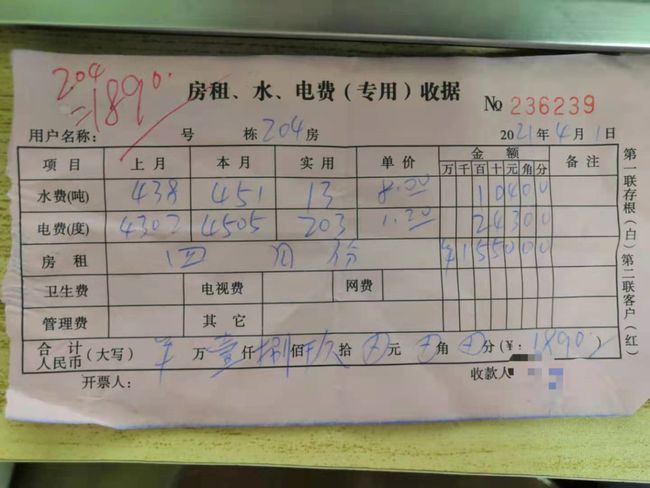 204
=1890.
房租、水、电费(专用)收据
№ 236239
用户名称: 号 栋204房 2021年4月1日
项目 上月 本月 实用 单价 金额 备注
万千百十元角分
水费(吨) 438 451 13 8.00 10400
电费(度) 4302 4505 203 1.20 24300
房租 四月份 ¥155000
卫生费 电视费 网费
管理费 其它
合计人民币(大写) 万壹仟捌佰玖拾 元 角 分(¥: 1890.)
开票人: 收款人
第一联存根(白)第二联客户(红)